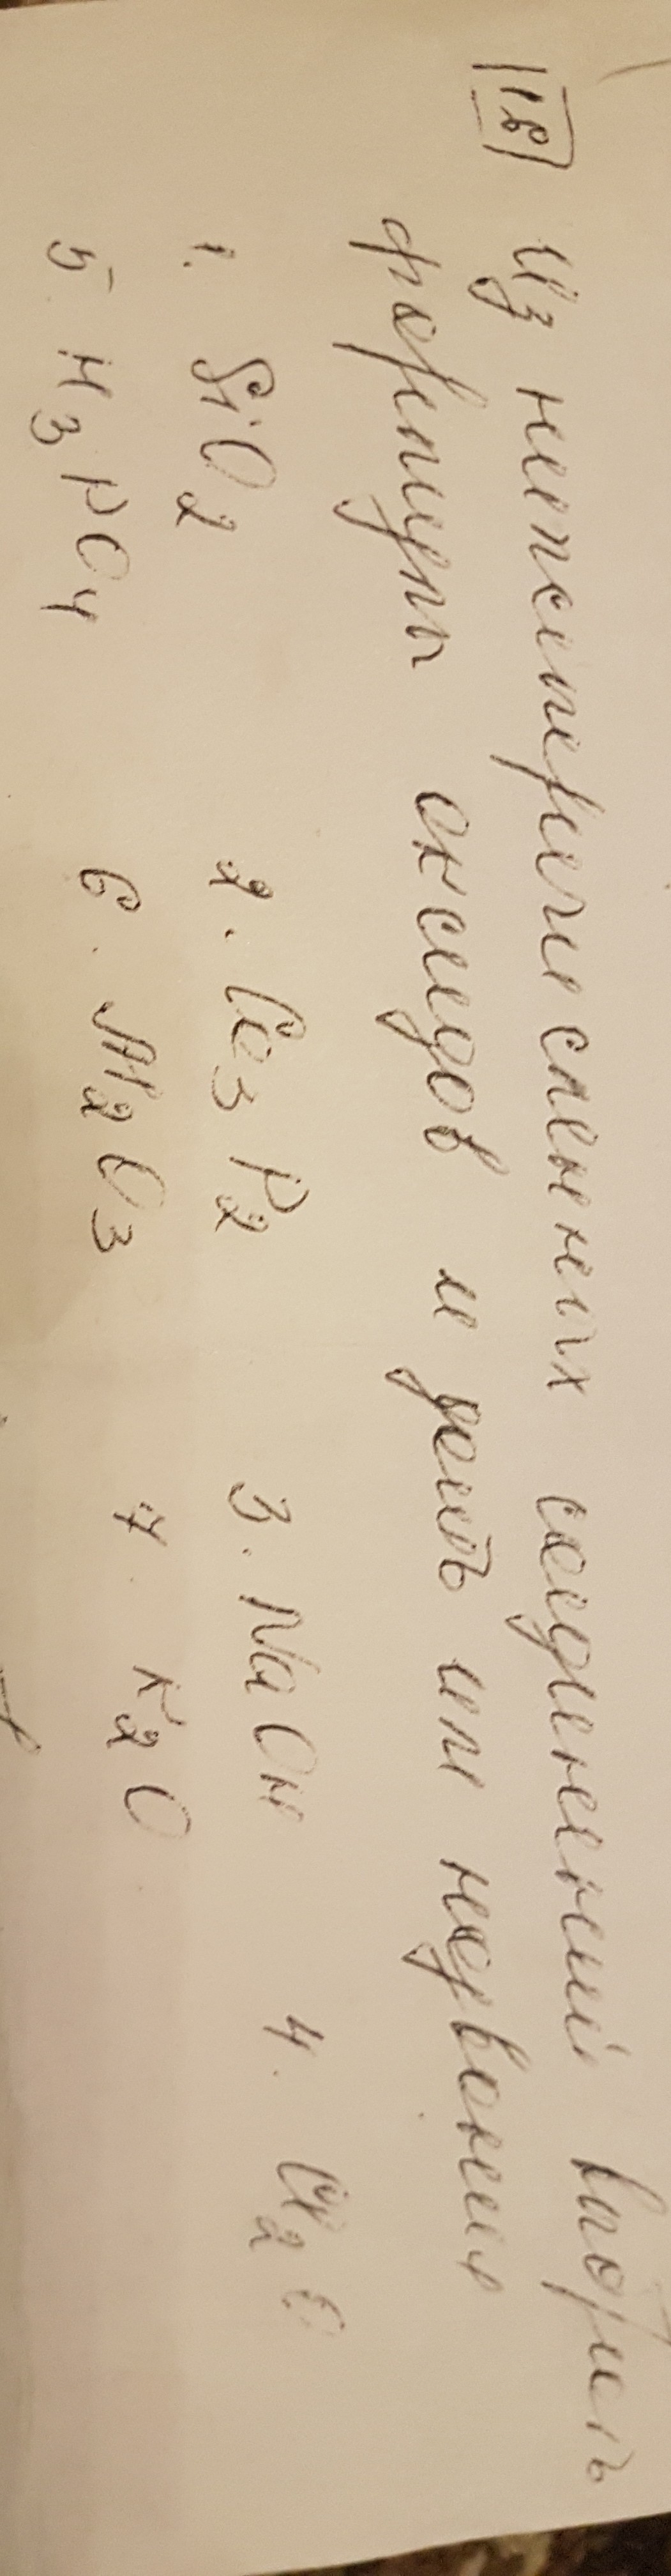 1в Из нижеперечисленных соединений выбрать
формулы оксидов и дать им названия
1. SiO2 2. Ca3P2 3. NaOH 4. Cl2O
5. H3PO4 6. Al2O3 7. K2O